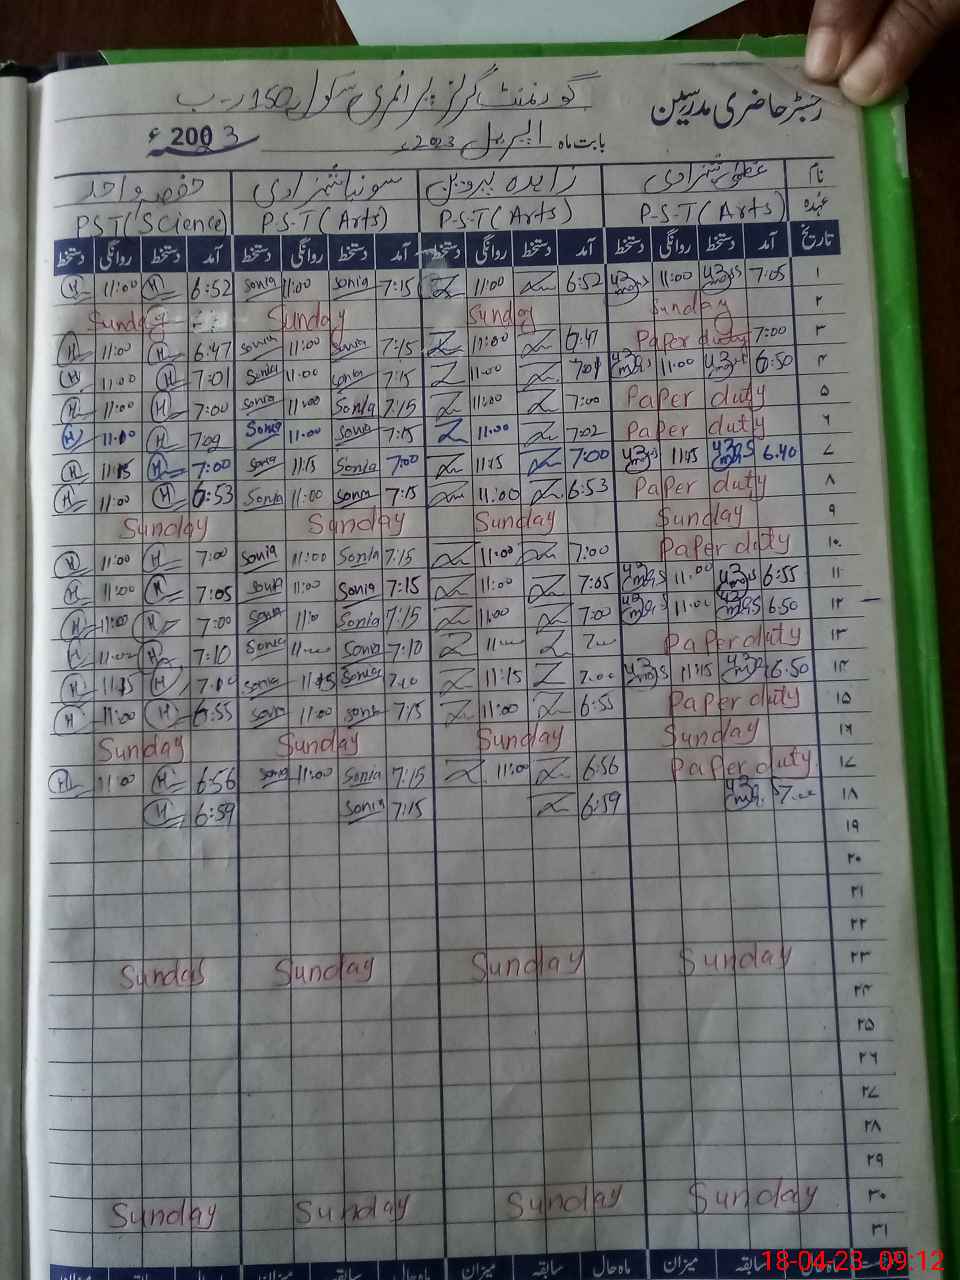 رجسٹر حاضری مدرسین گورنمنٹ گرلز پرائمری سکول 150 ر-ب
بابت ماہ اپریل 2023ء 2003ء
نام عظمیٰ شہزادی زاہدہ پروین سونیا شہزادی حفصہ واحد
عہدہ P-S-T (Arts) P-S-T (Arts) P-S-T (Arts) PST (Science)
تاریخ آمد دستخط روانگی دستخط آمد دستخط روانگی دستخط آمد دستخط روانگی دستخط آمد دستخط روانگی دستخط
۱ 7:05 11:00 6:52 Z 11:00 Z 7:15 Sonia 11:00 Sonia 6:52 H 11:00 H
۲ Sunday Sunday Sunday Sunday
۳ 7:00 Paper duty 6:47 Z 11:00 Z 7:15 Sonia 11:00 Sonia 6:47 H 11:00 H
۴ 6:50 11:00 7:01 Z 11:00 Z 7:15 Sonia 11:00 Sonia 7:01 H 11:00 H
۵ Paper duty 7:00 Z 11:00 Z 7:15 Sonia 11:00 Sonia 7:00 H 11:00 H
۶ Paper duty 7:02 Z 11:00 Z 7:15 Sonia 11:00 Sonia H H
۷ 6:40 11:15 7:00 Z 11:15 Z 7:00 Sonia 11:15 Sonia 7:00 H 11:15 H
۸ Paper duty 6:53 Z 11:00 Z 7:15 Sonia 11:00 Sonia 6:53 H 11:00 H
۹ Sunday Sunday Sunday Sunday
۱۰ Paper duty 7:00 Z 11:00 Z 7:15 Sonia 11:00 Sonia 7:00 H 11:00 H
۱۱ 6:55 11:00 7:05 Z 11:00 Z 7:15 Sonia 11:00 Sonia 7:05 H 11:00 H
۱۲ 6:50 11:00 7:00 Z 11:00 Z 7:15 Sonia Sonia 7:00 H 11:00 H
۱۳ Paper duty Z Z 7:10 Sonia Sonia 7:10 H H
۱۴ 6:50 11:15 7:00 Z 11:15 Z Sonia 11:15 Sonia H 11:15 H
۱۵ Paper duty 6:55 Z 11:00 Z 7:15 Sonia 11:00 Sonia 6:55 H 11:00 H
۱۶ Sunday Sunday Sunday Sunday
۱۷ Paper duty 6:56 Z 11:00 Z 7:15 Sonia 11:00 Sonia 6:56 H 11:00 H
۱۸ 6:59 Z 7:15 Sonia 6:59 H
۱۹
۲۰
۲۱
۲۲
۲۳ Sunday Sunday Sunday Sunday
۲۴
۲۵
۲۶
۲۷
۲۸
۲۹
۳۰ Sunday Sunday Sunday Sunday
۳۱
ماہ حال سابقہ میزان ماہ حال سابقہ میزان ماہ حال سابقہ میزان ماہ حال سابقہ میزان
18-04-23 09:12